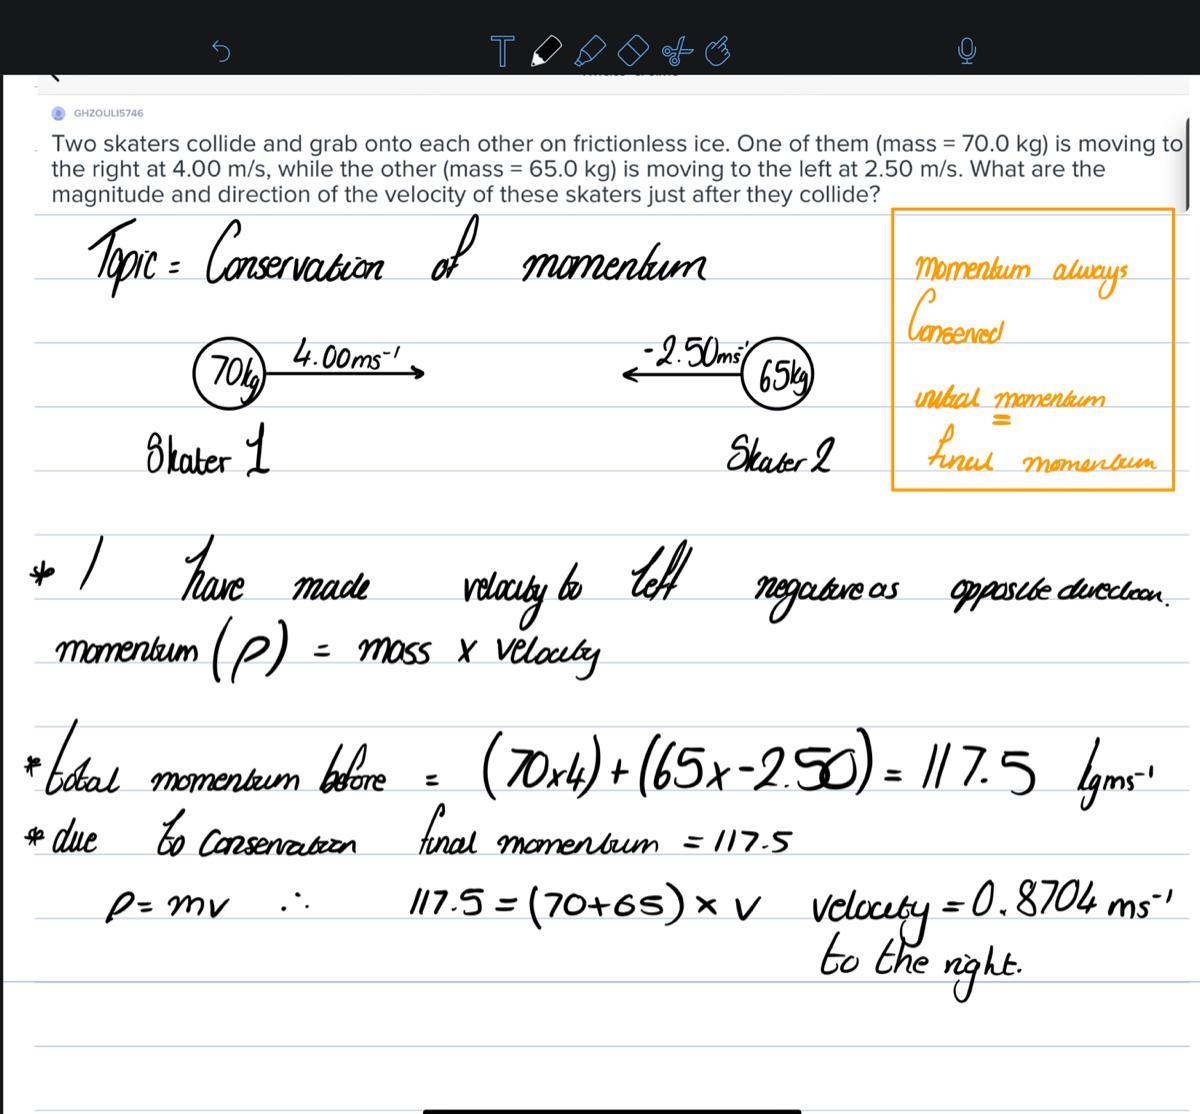 T
GHZOULI5746
Two skaters collide and grab onto each other on frictionless ice. One of them (mass = 70.0 kg) is moving to
the right at 4.00 m/s, while the other (mass = 65.0 kg) is moving to the left at 2.50 m/s. What are the
magnitude and direction of the velocity of these skaters just after they collide?
Topic = Conservation of momentum
momentum always
Conserved
initial momentum
=
final momentum
70kg 4.00ms⁻¹ -2.50ms⁻¹ 65kg
Skater 1 Skater 2
* I have made velocity to left negative as opposite direction.
momentum (p) = mass x velocity
* total momentum before = (70x4)+(65x-2.50) = 117.5 kgms⁻¹
* due to conservation final momentum = 117.5
p=mv ∴ 117.5 = (70+65) x v velocity = 0.8704 ms⁻¹
to the right.